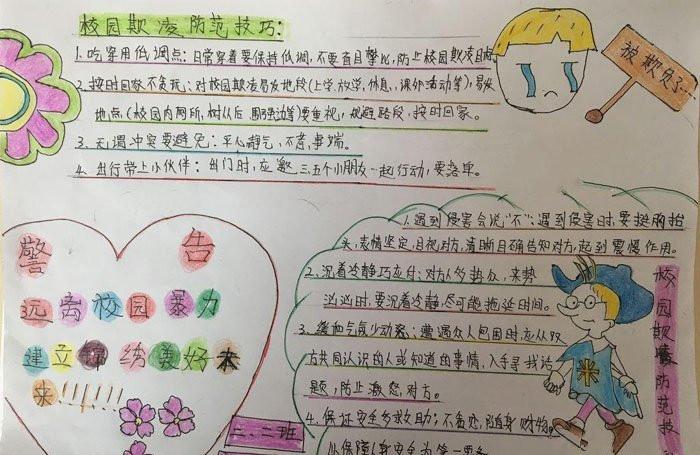 校园欺凌防范技巧:
1.吃穿用低调点:日常穿着要保持低调,不要盲目攀比,防止校园欺凌目标
2.按时回家不贪玩:对校园欺凌易发地段(上学、放学、休息、课外活动等),易发
地点(校园内厕所,树丛后围强边等要重视,规避路段,按时回家。
3.无谓冲突要避免:平心静气,不惹事端。
4.出行带上小伙伴:出门时,应邀三五个小朋友一起行动,要落单。
被欺负了…
警告
远离校园暴力
建立 练美好未
来!!!!!!
三.二班
1.遇到侵害会说"不":遇到侵害时,要挺胸抬
头,表情坚定,目视对方,清晰目确告知对方,起到震慑作用。
2.沉着冷静巧应付:对方人多势众,来势
汹汹时,要沉着冷静,尽可能拖延时间。
3.缓和气氛少动怒:遭遇众人包围时,应从双
方共同认识的人或知道的事情,入手寻找话
题,防止激怒对方。
4.保证安全多求助:不贪恋随身财物。
以保障人身安全为第一要务
校园欺凌防范技